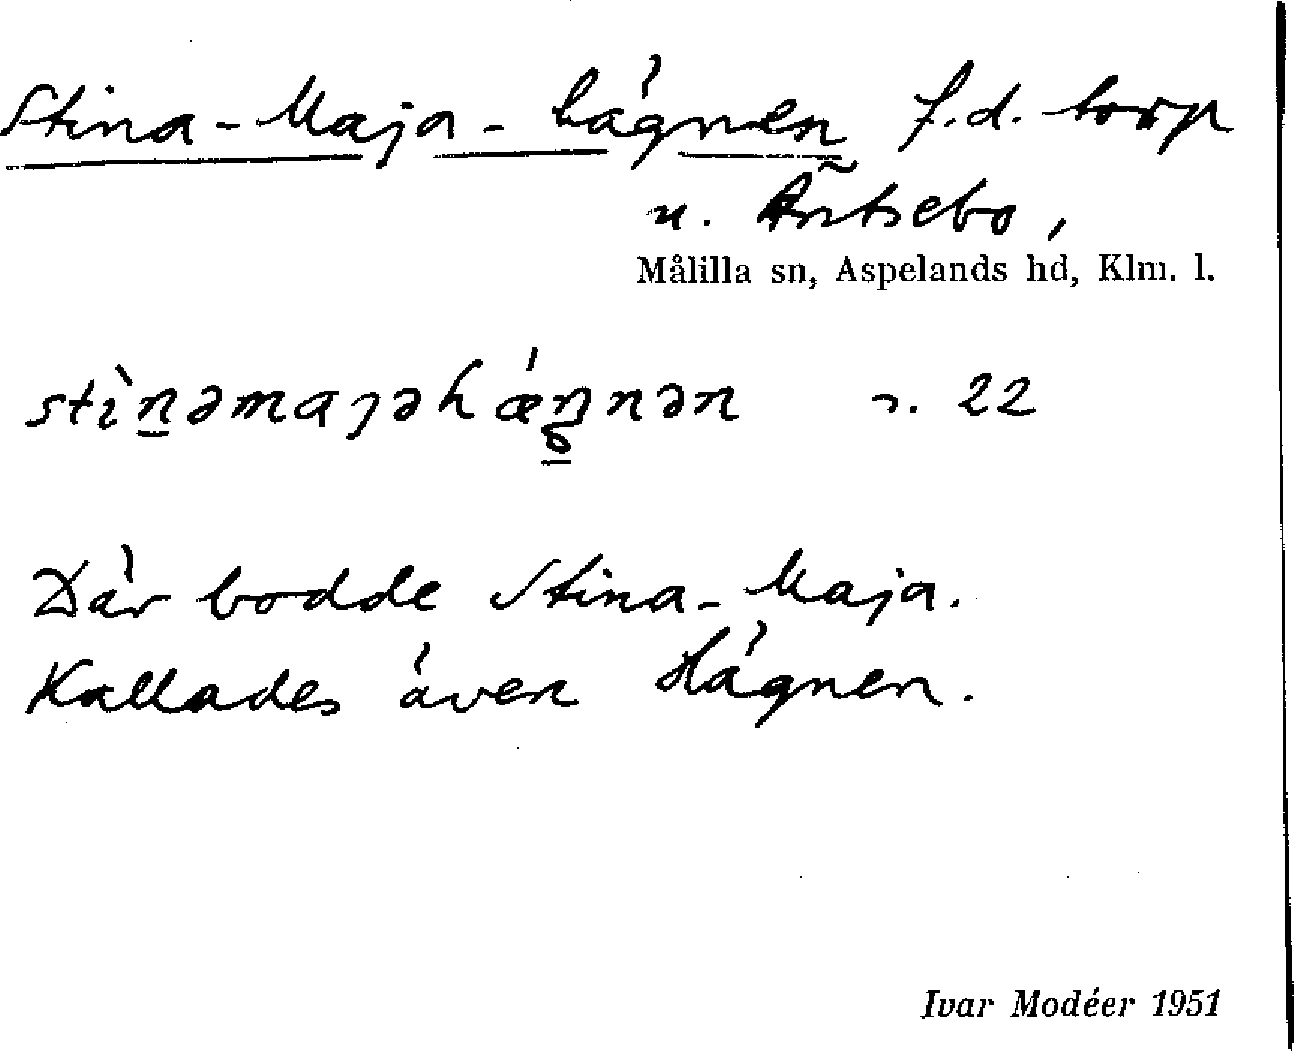 Stina-Maja-hägnen f.d. torp
u. Äntsebo,
Målilla sn, Aspelands hd, Klm. l.
22
Där bodde Stina-Maja.
Kallades även Hägnen.
Ivar Modéer 1951